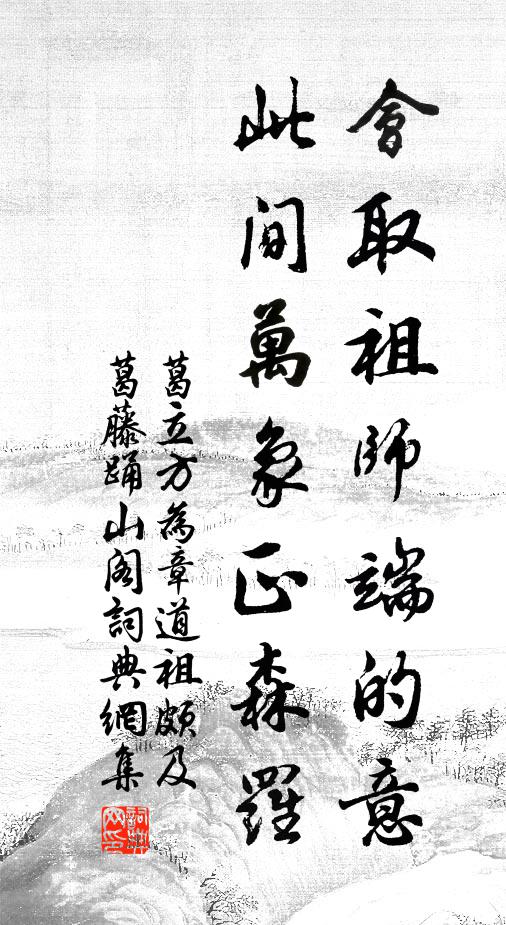 會取祖師端的意
此間萬象正森羅
葛立方為章道祖頗及
葛藤踊山閣詞典網集
詞典网印